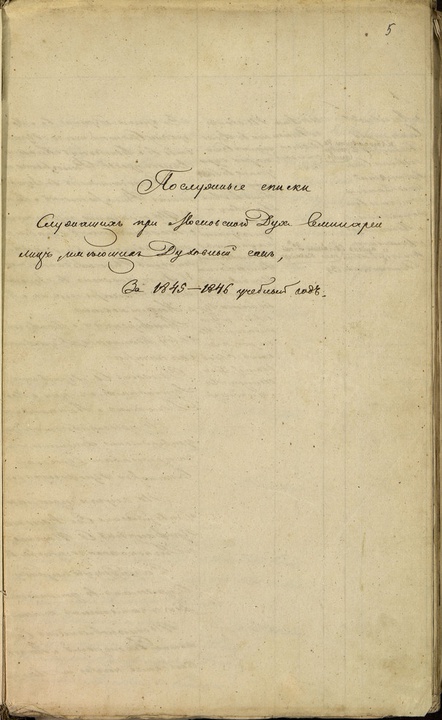 5
Послужные списки
Служащихъ при Московской Дух. Семинаріи
лицъ, имѣющихъ Духовный санъ,
За 1845–1846 учебный годъ.